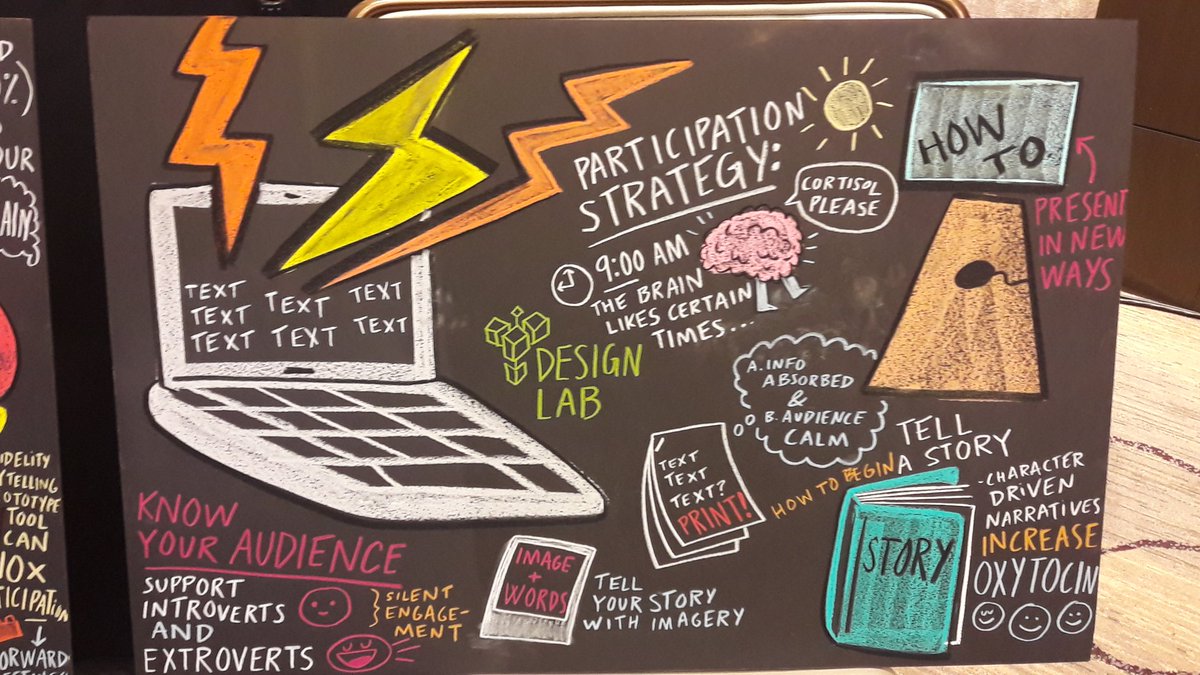 PARTICIPATION
STRATEGY:
CORTISOL
PLEASE
9:00 AM
THE BRAIN
LIKES CERTAIN
TIMES...
HOW
TO
PRESENT
IN NEW
WAYS
TEXT TEXT TEXT
TEXT TEXT TEXT
TEXT
DESIGN
LAB
A. INFO
ABSORBED
&
B. AUDIENCE
CALM
TEXT
TEXT
TEXT?
PRINT!
HOW TO BEGIN
TELL
A STORY
STORY
-CHARACTER
DRIVEN
NARRATIVES
INCREASE
OXYTOCIN
KNOW
YOUR AUDIENCE
SUPPORT
INTROVERTS
AND
EXTROVERTS
SILENT
ENGAGE-
MENT
IMAGE
+
WORDS
TELL
YOUR STORY
WITH IMAGERY
%)
TOOL
CAN